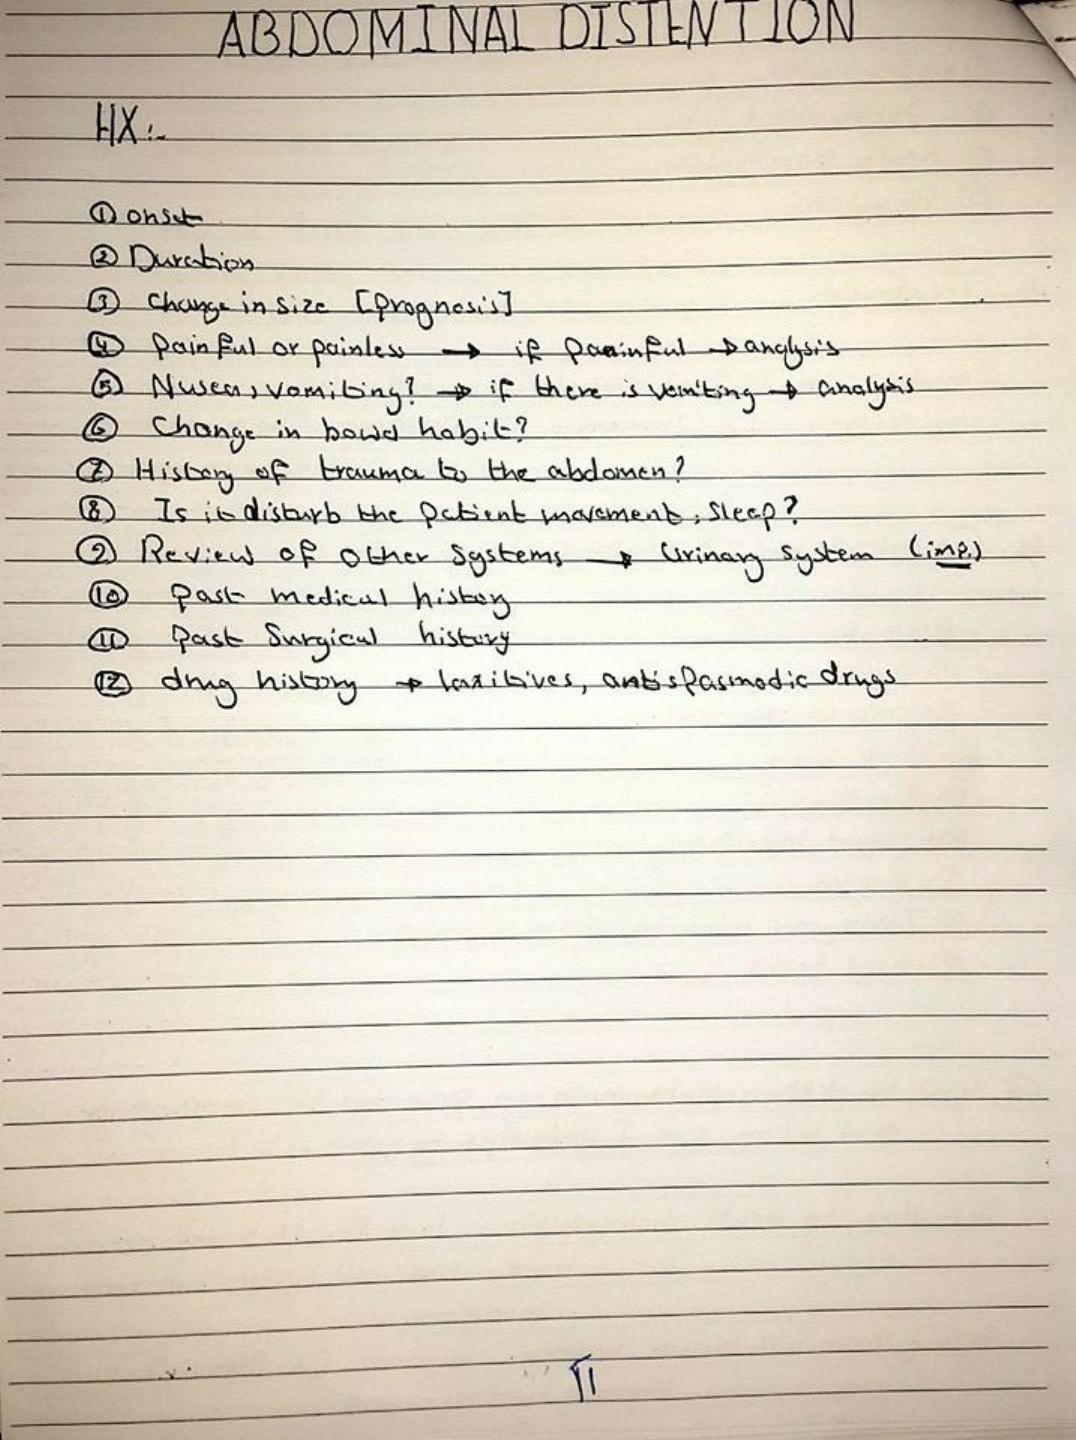 ABDOMINAL DISTENTION
HX:-
① onset
② Duration
③ Change in size [prognosis]
④ painful or painless → if painful → analysis
⑤ Nusea, vomiting? → if there is vomiting → analysis
⑥ Change in bowel habit?
⑦ History of trauma to the abdomen?
⑧ Is it disturb the patient movement, sleep?
⑨ Review of other systems → Urinary system (imp.)
⑩ past medical history
⑪ past Surgical history
⑫ drug history → laxitives, antispasmodic drugs